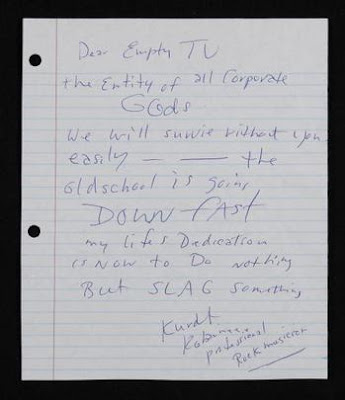 Dear Empty TV
the Entity of all Corporate
GODS
We will survive without you
easily — — the
oldschool is going
DOWN fAST
my life's Dedication
is Now to Do nothing
But SLAG something
Kurdt
professional
Rockmusician